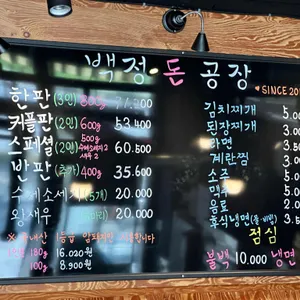 백정·돈 공장
SINCE 20
한판(3인) 800g 77.200
커플판(2인) 600g 53.400
스페셜(2인) 500g 60.500
반판(추가) 400g 35.600
수제소세지(5개) 20.000
왕새우 20.000
1등급
180g 16.020원
100g 8.900원
김치찌개 5.00
된장찌개
라면 3.50
계란찜
소주
맥주
음료
후식냉면
점심
불백 10.000 냉면